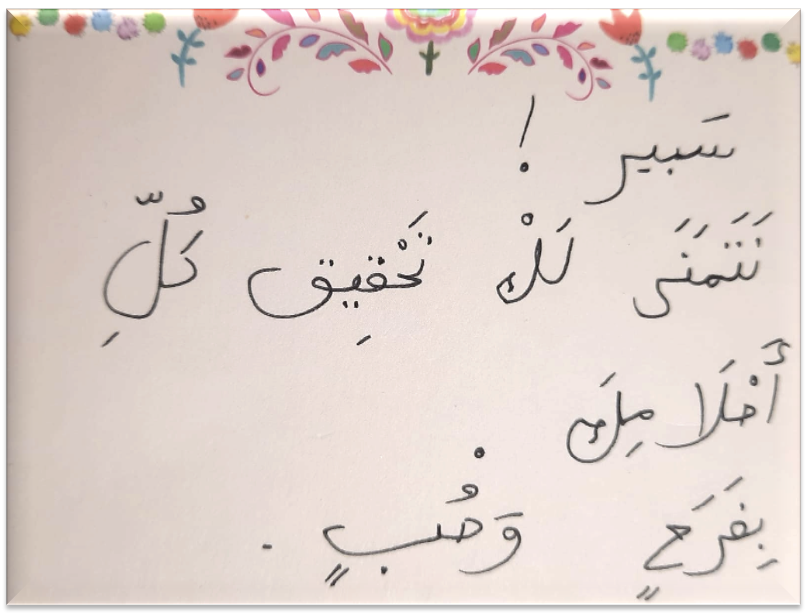 سَبير !
نَتَمنَى لَكْ تَحْقِيق كُلِّ
أَحْلَامِكَ
بِفَرَحٍ وَحُبٍ .